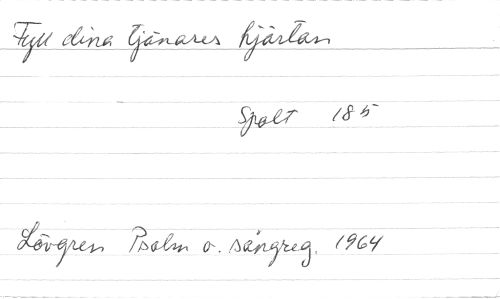 Fyll dina tjänares hjärtan
Spalt 185
Lövgren Psalm o. sångreg. 1964